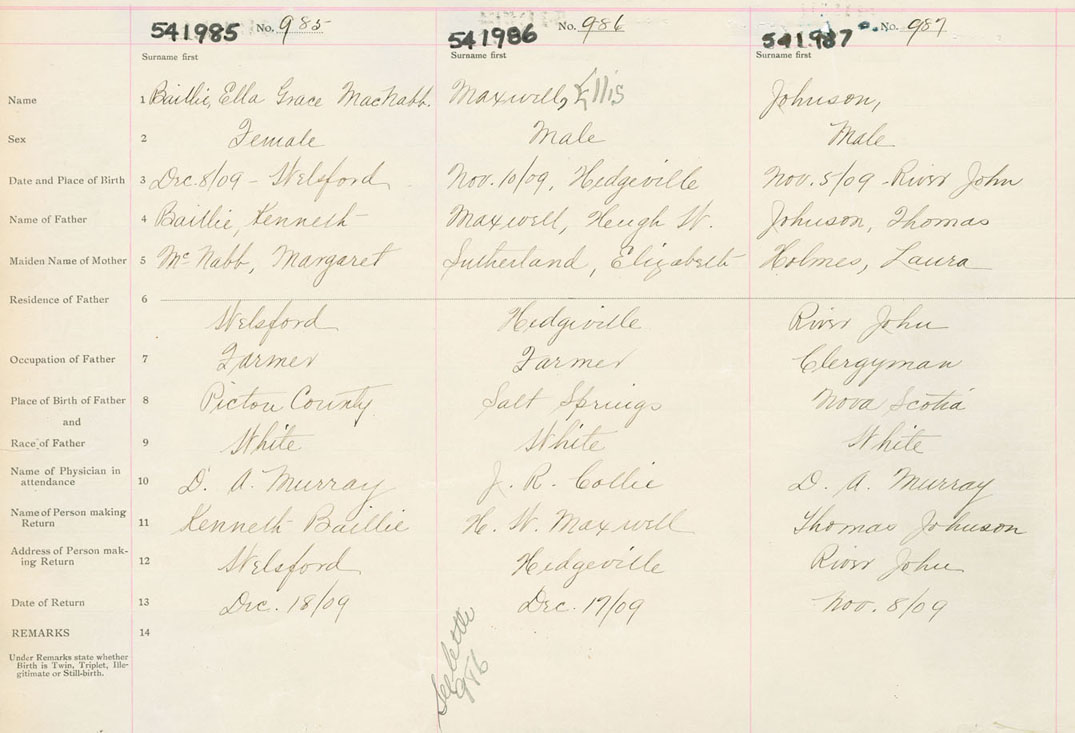 541985 No. 985 541986 No. 986 541987 No. 987
Surname first Surname first Surname first
Name 1 Baillie, Ella Grace MacNabb. Maxwell, Ellis Johnson,
Sex 2 Female Male Male
Date and Place of Birth 3 Dec. 8/09 - Welsford Nov. 10/09, Hedgeville Nov. 5/09 - River John
Name of Father 4 Baillie, Kenneth Maxwell, Heugh W. Johnson, Thomas
Maiden Name of Mother 5 Mc Nabb, Margaret Sutherland, Elizabeth Holmes, Laura
Residence of Father 6
Welsford Hedgeville River John
Occupation of Father 7 Farmer Farmer Clergyman
Place of Birth of Father 8 Pictou County Salt Springs Nova Scotia
and
Race of Father 9 White White White
Name of Physician in
attendance 10 D. A. Murray J. R. Collie D. A. Murray
Name of Person making
Return 11 Kenneth Baillie H. W. Maxwell Thomas Johnson
Address of Person mak-
ing Return 12 Welsford Hedgeville River John
Date of Return 13 Dec. 18/09 Dec. 17/09 Nov. 8/09
REMARKS 14
Under Remarks state whether
Birth is Twin, Triplet, Ille-
gitimate or Still-birth.
See letter
986